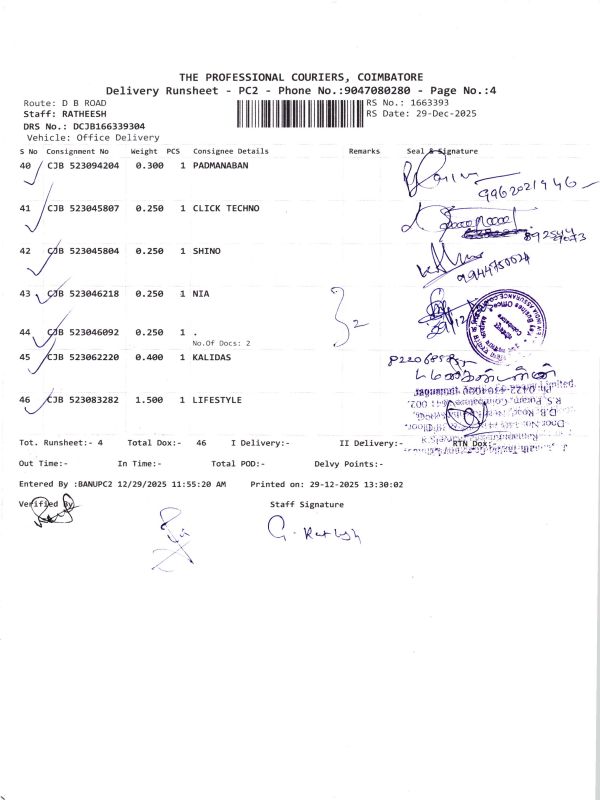 THE PROFESSIONAL COURIERS, COIMBATORE
Delivery Runsheet - PC2 - Phone No.:9047080280 - Page No.:4
Route: D B ROAD RS No.: 1663393
Staff: RATHEESH RS Date: 29-Dec-2025
DRS No.: DCJB166339304
Vehicle: Office Delivery
S No Consignment No Weight PCS Consignee Details Remarks Seal & Signature
40 CJB 523094204 0.300 1 PADMANABAN
9962021946
41 CJB 523045807 0.250 1 CLICK TECHNO
42 CJB 523045804 0.250 1 SHINO
9944750024
43 CJB 523046218 0.250 1 NIA
2
44 CJB 523046092 0.250 1 .
No.Of Docs: 2
45 CJB 523062220 0.400 1 KALIDAS
46 CJB 523083282 1.500 1 LIFESTYLE
Tot. Runsheet:- 4 Total Dox:- 46 I Delivery:- II Delivery:- RTN Dox:-
Out Time:- In Time:- Total POD:- Delvy Points:-
Entered By :BANUPC2 12/29/2025 11:55:20 AM Printed on: 29-12-2025 13:30:02
Verified By Staff Signature